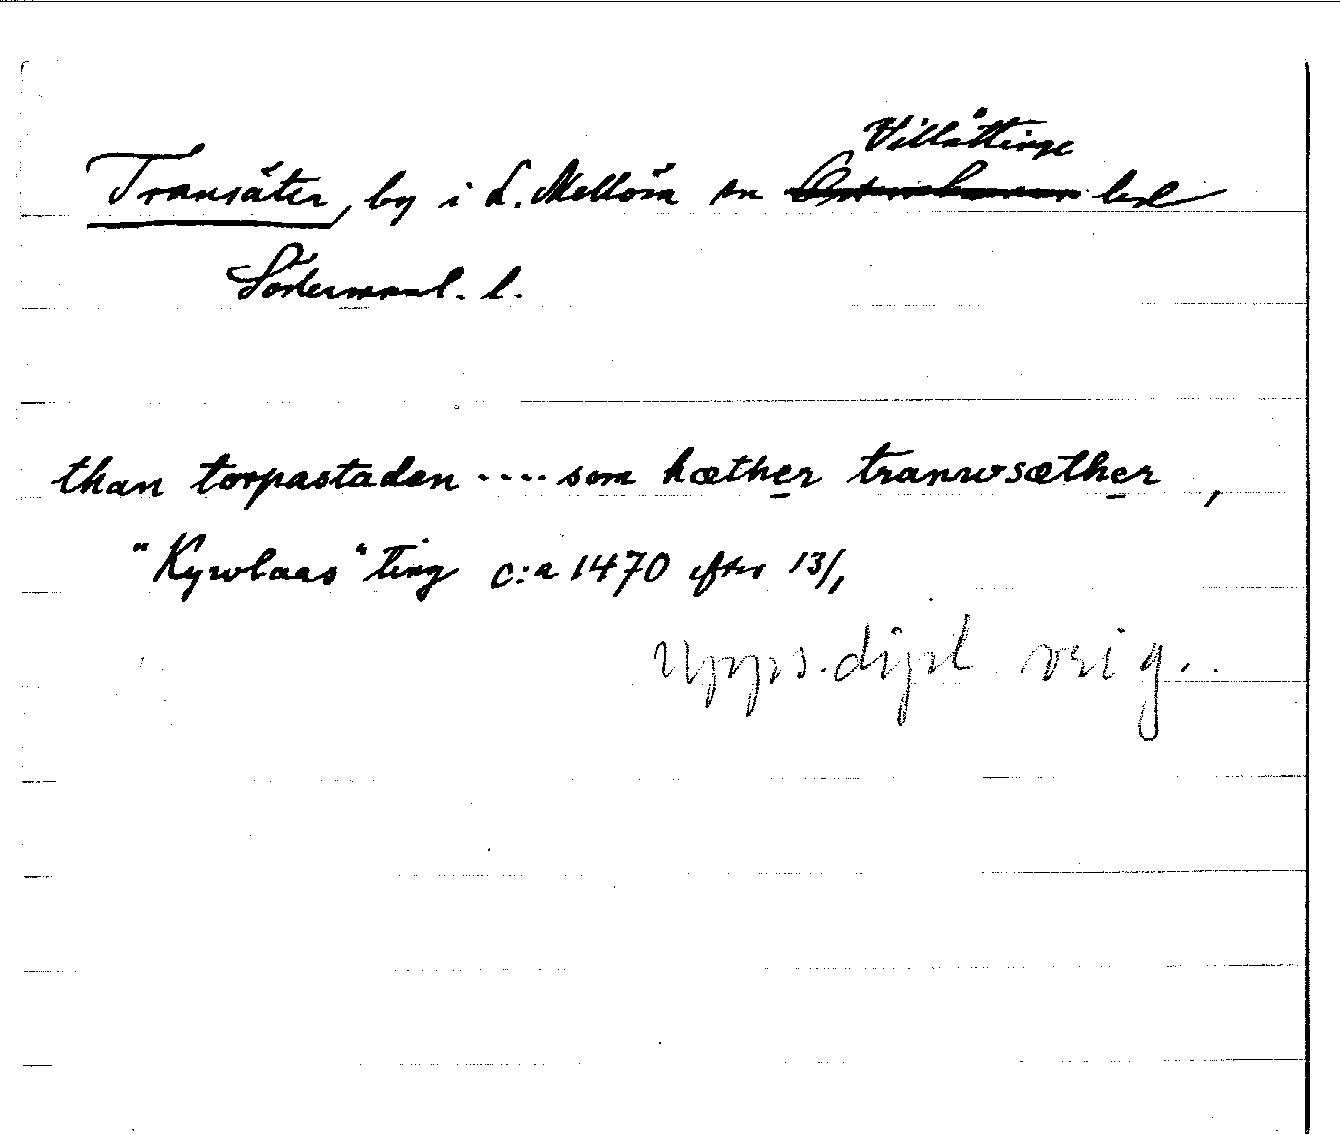 Villåttinge
Transäter, by i L. Mellösa sn hd
Södermanl. l.
than torpastaden .... som hæther tranwsæther,
"Kywlaas" ting c:a 1470 efter 13/1
Upps.dipl orig..